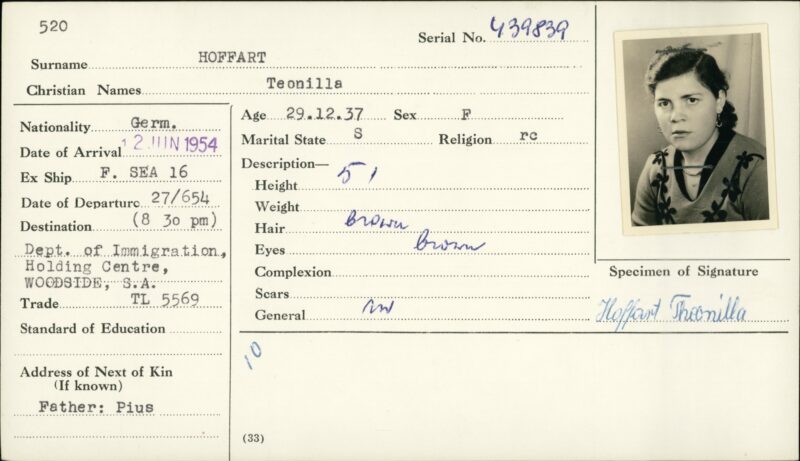 520
Serial No. 439839
Surname HOFFART
Christian Names Teonilla
Nationality Germ.
Date of Arrival 12 JUN 1954
Ex Ship F. SEA 16
Date of Departure 27/654
Destination (8 30 pm)
Dept. of Immigration,
Holding Centre,
WOODSIDE, S.A.
Trade TL 5569
Standard of Education
Address of Next of Kin
(If known)
Father: Pius
Age 29.12.37 Sex F
Marital State S Religion rc
Description—
Height 5 1
Weight
Hair Brown
Eyes Brown
Complexion
Scars
General
10
(33)
Specimen of Signature
Hoffart Theonilla